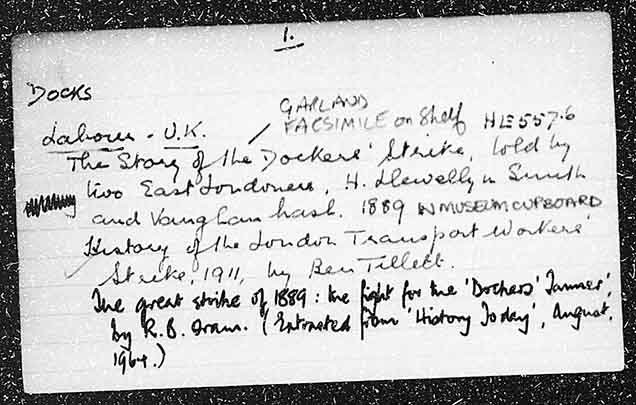 1.
DOCKS
GARLAND
FACSIMILE on Shelf HE557.6
Labour - U.K.
The Story of the Dockers' Strike, told by
two East Londoners, H. Llewellyn Smith
and Vaughan Nash. 1889 IN MUSEUM CUPBOARD
History of the London Transport Workers'
Strike, 1911, by Ben Tillett.
The great strike of 1889: the fight for the 'Dockers' Tanner',
by R.B. Oram. (Extracted from 'History Today', August,
1964.)